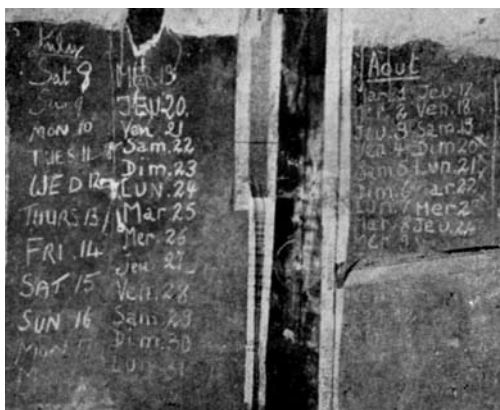 July
Sat 8
Sun 9
MON 10
TUES 11
WED 12
THURS 13
FRI. 14
SAT 15
SUN 16
MON 17
Mer. 19
JEU 20.
Ven. 21
Sam. 22
Dim. 23
LUN. 24
Mar 25
Mer. 26
Jeu 27
Ven. 28
Sam. 29
Dim. 30
Lun. 31
Aout
Mar. 1 Jeu. 17
Mer 2 Ven. 18
Jeu. 3 Sam. 19
Ven 4 Dim. 20
Sam 5 Lun. 21
Dim. 6 Mar 22
Lun. 7 Mer 2
Mar 8 Jeu. 24
Mer 9